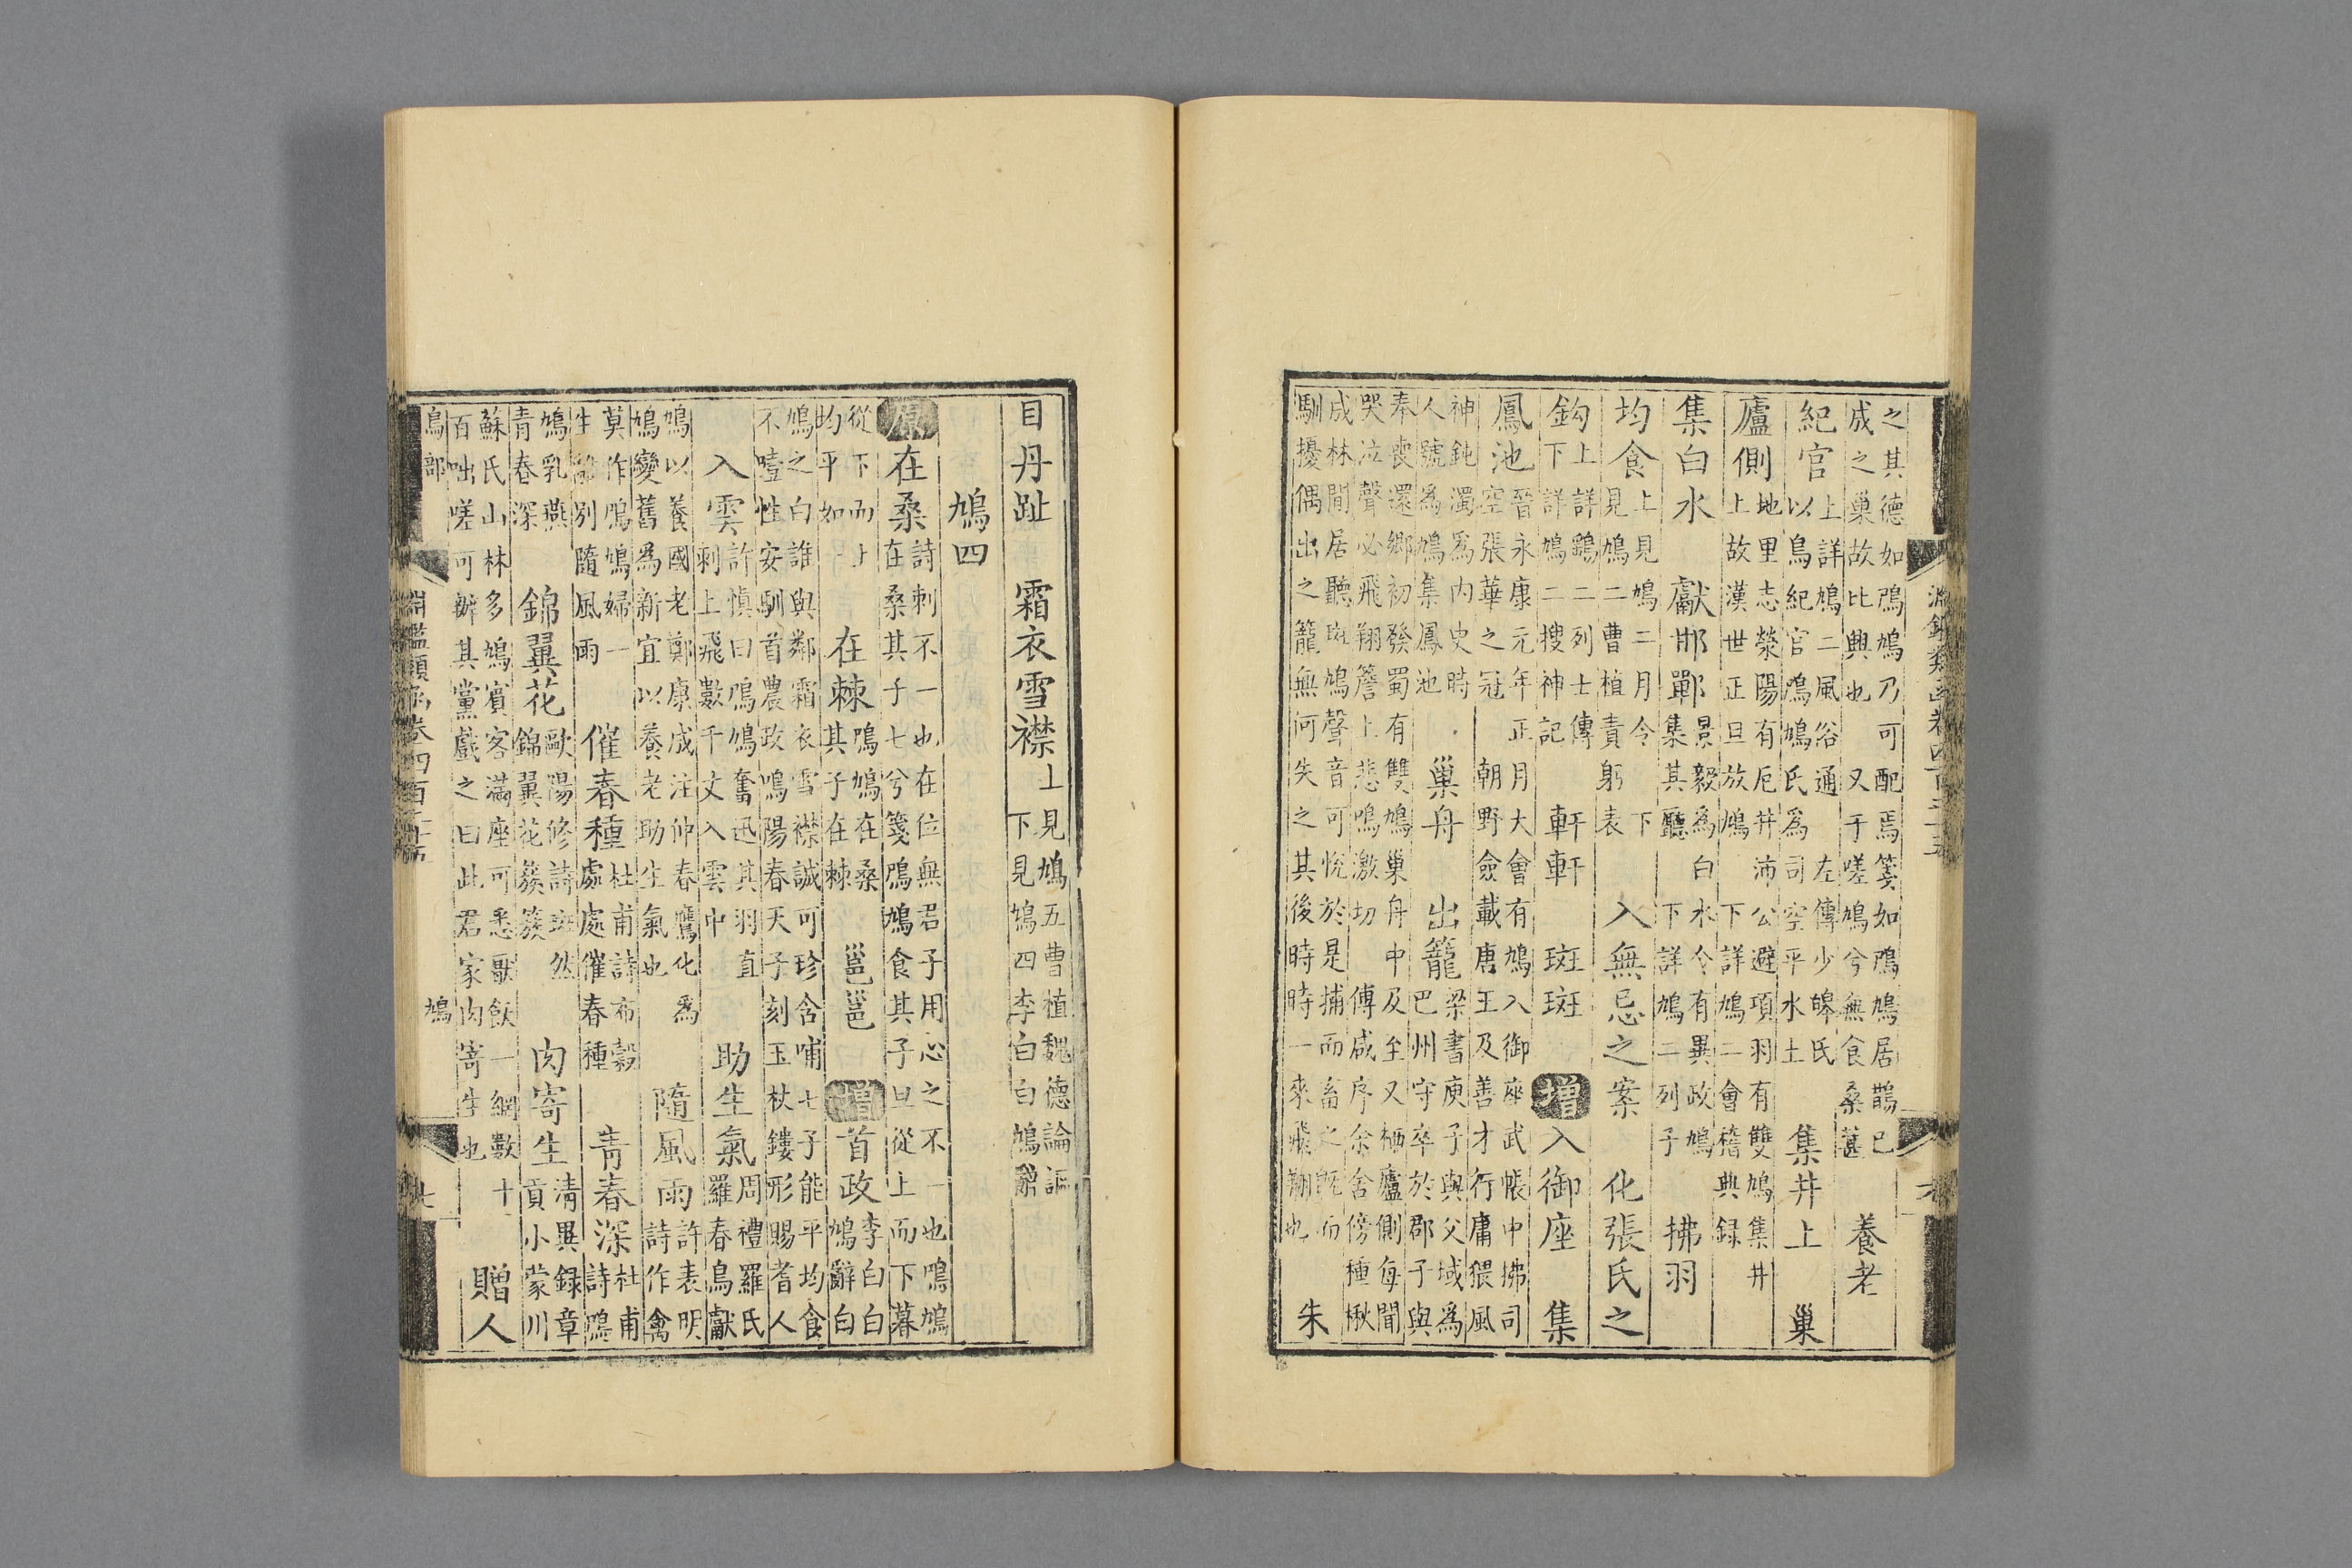 之其德如鳲鳩乃可配焉箋如鳲鳩居鵲已成之巢故比興也　又于嗟鳩兮無食桑葚　養老
紀官　上詳鳩二風俗通　左傳少皞氏以鳥紀官鳲鳩氏為司空平水土　集井上　巢
廬側　地里志滎陽有厄井沛公避項羽有雙鳩集井上故漢世正旦放鳩　下詳鳩二會稽典録
集白水　獻邯鄲　景毅為白水令有異政鳩集其廳　下詳鳩二列子　拂羽
均食　上見鳩二月令　下見鳩二曹植責躬表　入無忌之案　化張氏之
鈎　上詳鷂二列士傳下詳鳩二搜神記　軒軒　斑斑　增　入御座　集
鳳池　晉永康元年正月大會有鳩入御座武帳中拂司空張華之冠　朝野僉載唐王及善才行庸猥風
神鈍濁為内史時人號為鳩集鳳池　巢舟　出籠　梁書庾子與父域為巴州守卒於郡子與
奉喪還鄉初發蜀有雙鳩巢舟中及至又栖廬側每聞哭泣聲必飛翔簷上悲鳴激切　傅咸序余舍傍種楸
成林閒居聽斑鳩聲音可悅於是捕而畜之既而馴擾偶出之籠無何失之其後時時一來飛翔也　朱
目丹趾　霜衣雪襟　上見鳩五曹植魏德論謳下見鳩四李白白鳩辭
鳩四
原　在桑　詩刺不一也在位無君子用心之不一也鳲鳩在桑其子七兮箋鳲鳩食其子旦從上而下暮
從下而上均平如一　在棘　鳲鳩在桑其子在棘　邕邕　增　首政　李白白鳩辭白
鳩之白誰與鄰霜衣雪襟誠可珍含哺七子能平均食不噎性安馴首農政鳴陽春天子刻玉杖鏤形賜耆人
入雲　許慎曰鳴鳩奮迅其羽直刺上飛數千丈入雲中　助生氣　周禮羅氏羅春鳥獻
鳩以養國老鄭康成注仲春鷹化為鳩變舊為新宜以養老助生氣也　隨風雨　許表明詩作禽
莫作鳲鳩婦一生離別隨風雨　催春種　杜甫詩布穀處處催春種　青春深　杜甫詩鳴
鳩乳燕青春深　錦翼花　歐陽修詩斑然錦翼花簇簇　肉寄生　清異録章貢小蒙川
蘇氏山林多鳩賓客滿座可悉厭飫一網數十百咄嗟可辦其黨戲之曰此君家肉寄生也　贈人
鳥部　鳩
淵鑑類函卷四百二十五　七